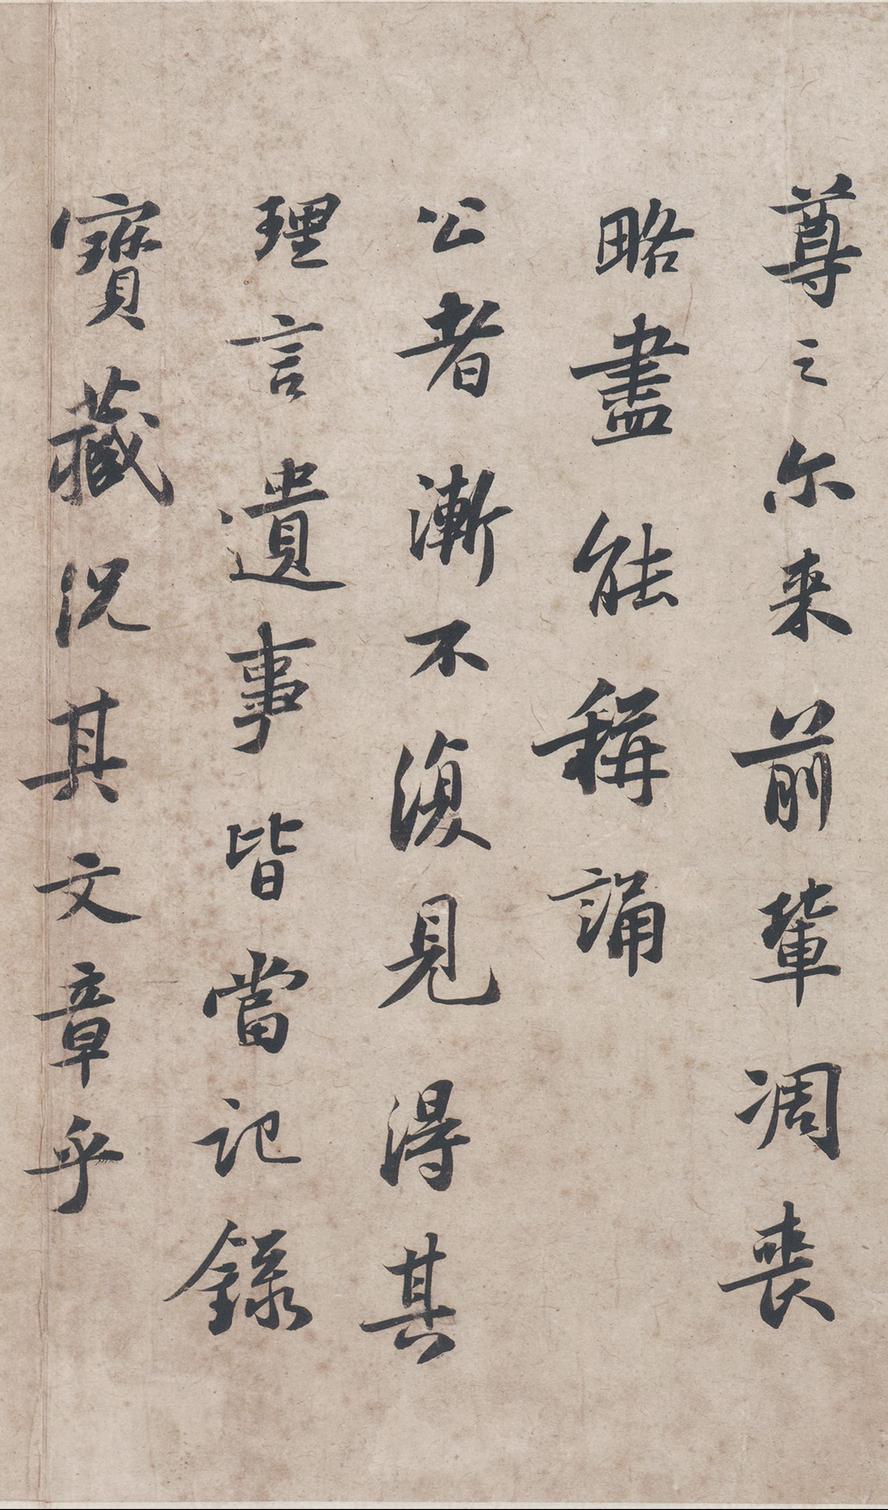 尊之尔来前輩凋喪
略盡能稱誦
公者漸不復見得其
理言遺事皆當記錄
寶藏况其文章乎